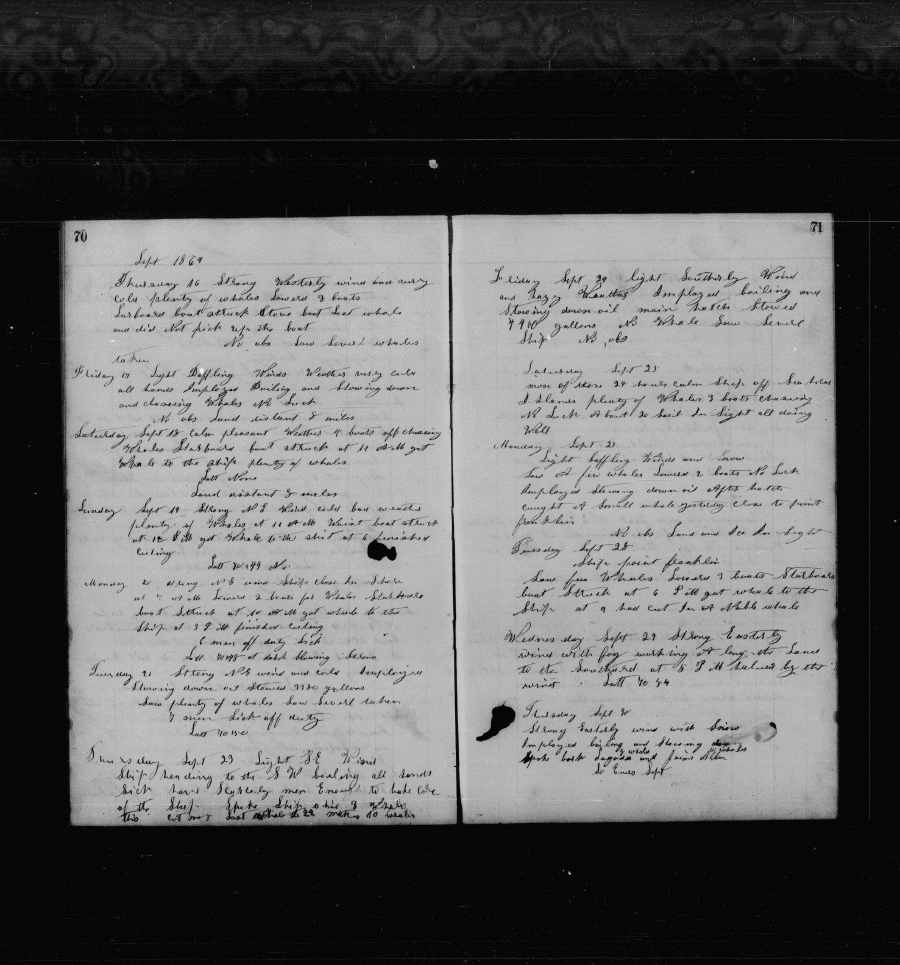 70
Sept 1869
Thursday 16 Strong Westerly wind and very
cold plenty of whales Lowerd 3 boats
Larboard boat struck Stove boat Lost whale
and did Not pick up the boat
No obs Saw Severl whales
taken
Friday 17 Light Baffling Winds Weather very cold
all hands Imployed Boiling and Stowing down
and chaseing Whales No Luck
No obs Land distant 8 miles
Saturday Sept 18 Calm pleasant Weather 4 boats off chaseing
Whales Starboard boat struck at 11 A M got
Whale to the Ship plenty of whales
Latt None
Land distant 8 miles
Sunday Sept 19 Strong N E Wind cold bad weather
plenty of Whales at 11 A M Waist boat struck
at 12 P M got Whale to the ship at 6 finished
cutting
Latt 70 49 No
Monday 20 Strong N E wind Ship close In Shore
at A M Lowerd 2 boats for Whales Starboard
boat Struck at 10 A M got whale to the
Ship at 3 P M finished cutting
6 men off duty Sick
Latt at dark blowing Strong
Tuesday 21 Strong N E wind and cold Imployed
Stowing down oil Stowed gallons
Saw plenty of whales Saw Severl taken
7 men Sick off duty
Latt 70
Thursday Sept 23 Light S E Wind
Ship heading to the S W boiling all hands
Sick have Scarcely men Enough to take care
of the Ship Spoke Ship Ohio 8 whales
this makes 10 whales
71
Friday Sept 24 light Southerly Wind
and hazy Weather Imployed boiling and
Stowing down oil main hatch Stowed
4400 gallons No Whale Saw Severl
Ship No obs
Saturday Sept 25
most of these 24 hours calm Ship off Sea horse
Islands plenty of Whales 3 boats chaseing
No Luck About 20 Sail In Sight all doing
Well
Monday Sept 27
Light baffling Winds and Snow
Saw A few whales Lowerd 2 boats No Luck
Imployed Stowing down oil After hatch
caught A Small whale yesterday close to point
franklin
No obs Land and Ice In Sight
Tuesday Sept 28
Ship point franklin
Saw few Whales Lowerd 3 boats Starboard
boat Struck at 6 P M got whale to the
Ship at 9 had cut In A Noble whale
Wednesday Sept 29 Strong Easterly
wind with fog working A long the Land
to the Southard at 8 P M halued by the
wind Latt 70 54
Thursday Sept 30
Strong Easterly wind with Snow
Imployed boiling and Stowing down
Spoke bark Eugenia and James Allen
So Ends Sept